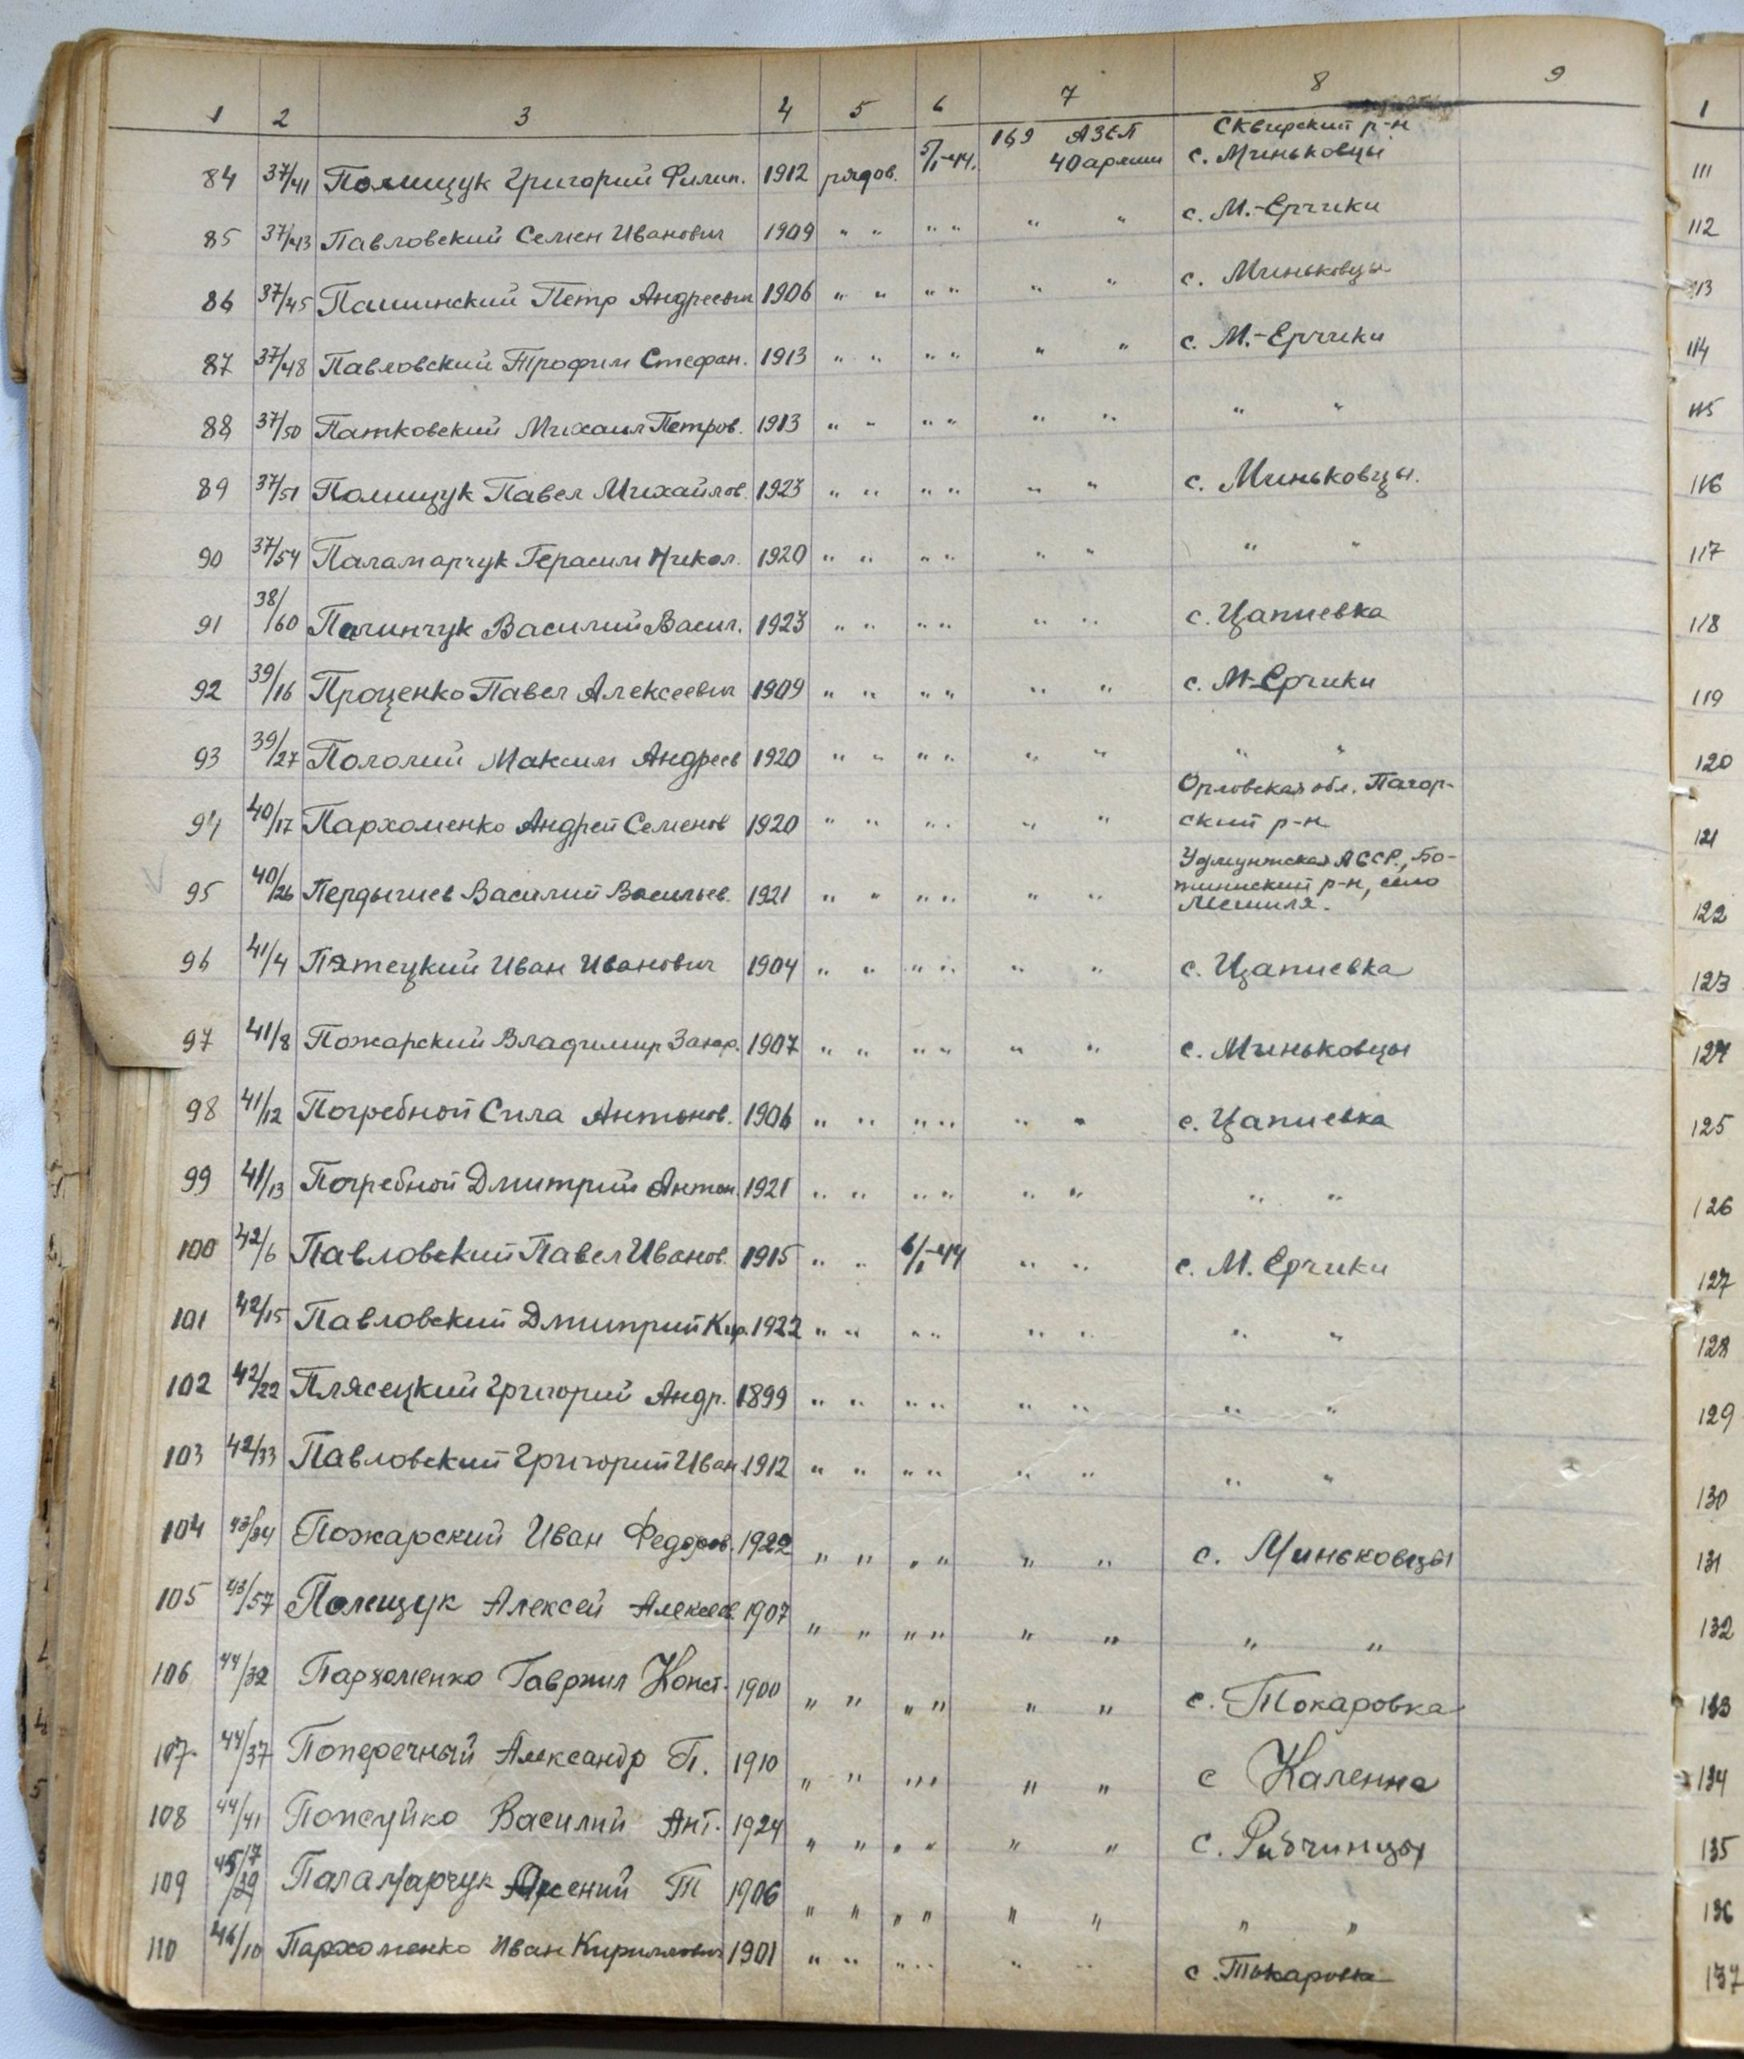 1 2 3 4 5 6 7 8 9
Сквирский р-н
84 37/41 Полищук Григорий Филип. 1912 рядов. 5/I-44. 169 АЗСП 40 армии с. Миньковцы
85 37/43 Павловский Семен Иванович 1909 " " " " " " с. М.-Ерчики
86 37/45 Пашинский Петр Андреевич 1906 " " " " " " с. Миньковцы
87 37/48 Павловский Трофим Стефан. 1913 " " " " " " с. М.-Ерчики
88 37/50 Патковский Михаил Петров. 1913 " " " " " " " "
89 37/51 Полищук Павел Михайлов. 1923 " " " " " " с. Миньковцы.
90 37/54 Паламарчук Герасим Никол. 1920 " " " " " " " "
91 38/60 Палинчук Василий Васил. 1923 " " " " " " с. Цапиевка
92 39/16 Проценко Павел Алексеевич 1909 " " " " " " с. М-Ерчики
93 39/27 Пололий Максим Андреев 1920 " " " " " " " "
94 40/17 Пархоменко Андрей Семенов 1920 " " " " " " Орловская обл. Пагор-
ский р-н
95 40/26 Пердычиев Василий Васильев. 1921 " " " " " " Удмуртская АССР,
р-н, село
96 41/4 Пятецкий Иван Иванович 1904 " " " " " " с. Цапиевка
97 41/8 Пожарский Владимир Захар. 1907 " " " " " " с. Миньковцы
98 41/12 Погребной Сила Антонов. 1906 " " " " " " с. Цапиевка
99 41/13 Погребной Дмитрий Антон. 1921 " " " " " " " "
100 42/6 Павловский Павел Иванов. 1915 " " 6/I-44 " " с. М. Ерчики
101 42/15 Павловский Дмитрий Кир. 1922 " " " " " " " "
102 42/22 Плясецкий Григорий Андр. 1899 " " " " " " " "
103 42/33 Павловский Григорий Иван. 1912 " " " " " " " "
104 43/34 Пожарский Иван Федоров. 1922 " " " " " " с. Миньковцы
105 43/57 Полещук Алексей Алексеев. 1907 " " " " " " " "
106 44/32 Пархоменко Гаврил Конст. 1900 " " " " " " с. Токаровка
107 44/37 Поперечный Александр П. 1910 " " " " " " с Каленна
108 44/41 Пожуйко Василий Ант. 1924 " " " " " " с. Рибчинцы
109 45/17 39 Паламарчук Арсений Т 1906 " " " " " " " "
110 46/10 Пархоменко Иван Кириллович 1901 " " " " " " с. Токаровка
1
111
112
113
114
115
116
117
118
119
120
121
122
123
124
125
126
127
128
129
130
131
132
133
134
135
136
137